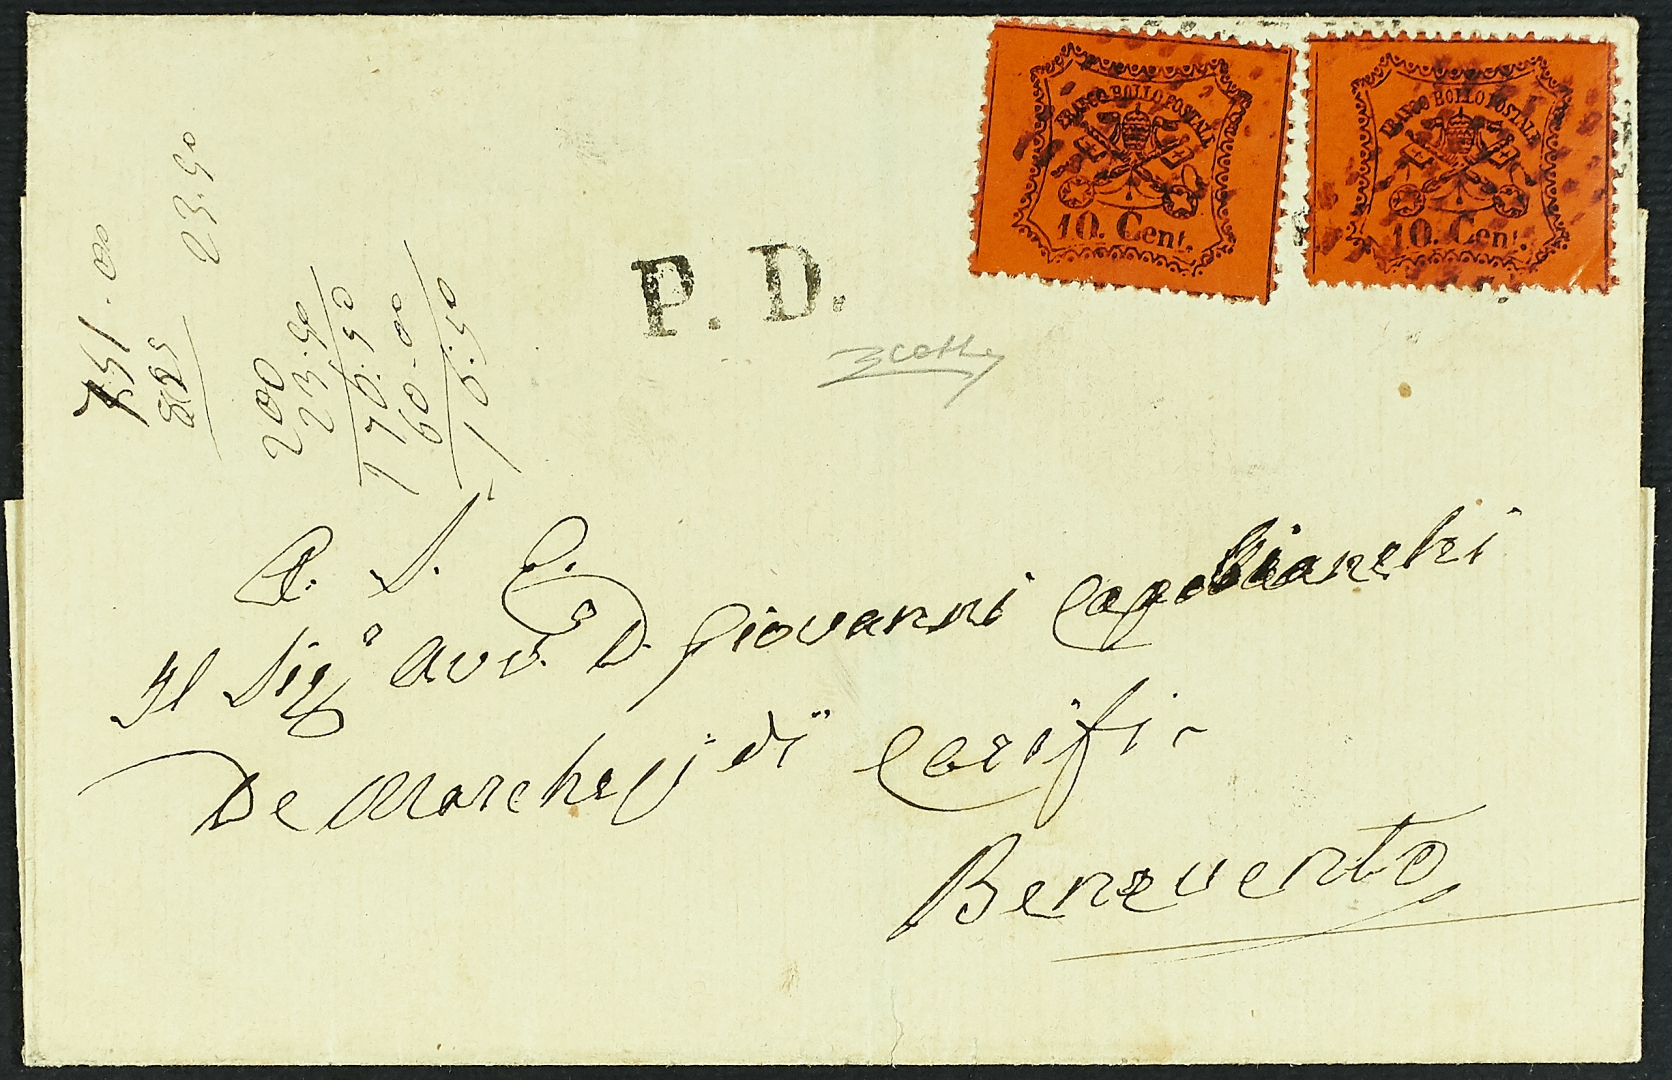 FRANCO BOLLO POSTALE
10. Cent.
FRANCO BOLLO POSTALE
10. Cent.
P. D.
23.50
200
23.50
176.50
60.00
A. S. E.
Il Sig.e Avv. D. Giovanni Capobianchi
De Marchesi di Carifi
Benevento